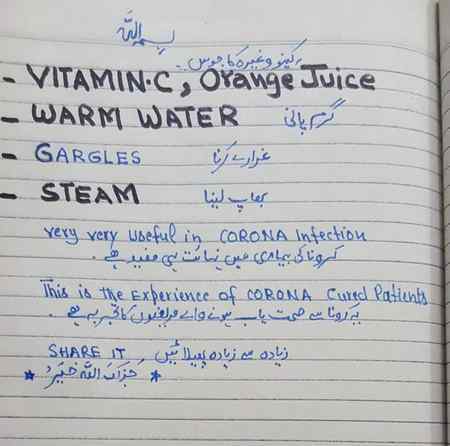 بسم اللہ
کینو وغیرہ کا جوس
- VITAMIN.C, Orange Juice
- WARM WATER گرم پانی
- GARGLES غرارے کرنا
- STEAM بھاپ لینا
very very useful in CORONA Infection
کرونا کی بیماری میں نہائت ہی مفید ہے.
This is the Experience of CORONA Cured Patients
یہ کرونا سے صحت یاب ہونے والے مریضوں کا تجربہ ہے.
SHARE IT, زیادہ سے زیادہ پھیلائیں
* جَزَاکَ اللّٰہ خَیْر *